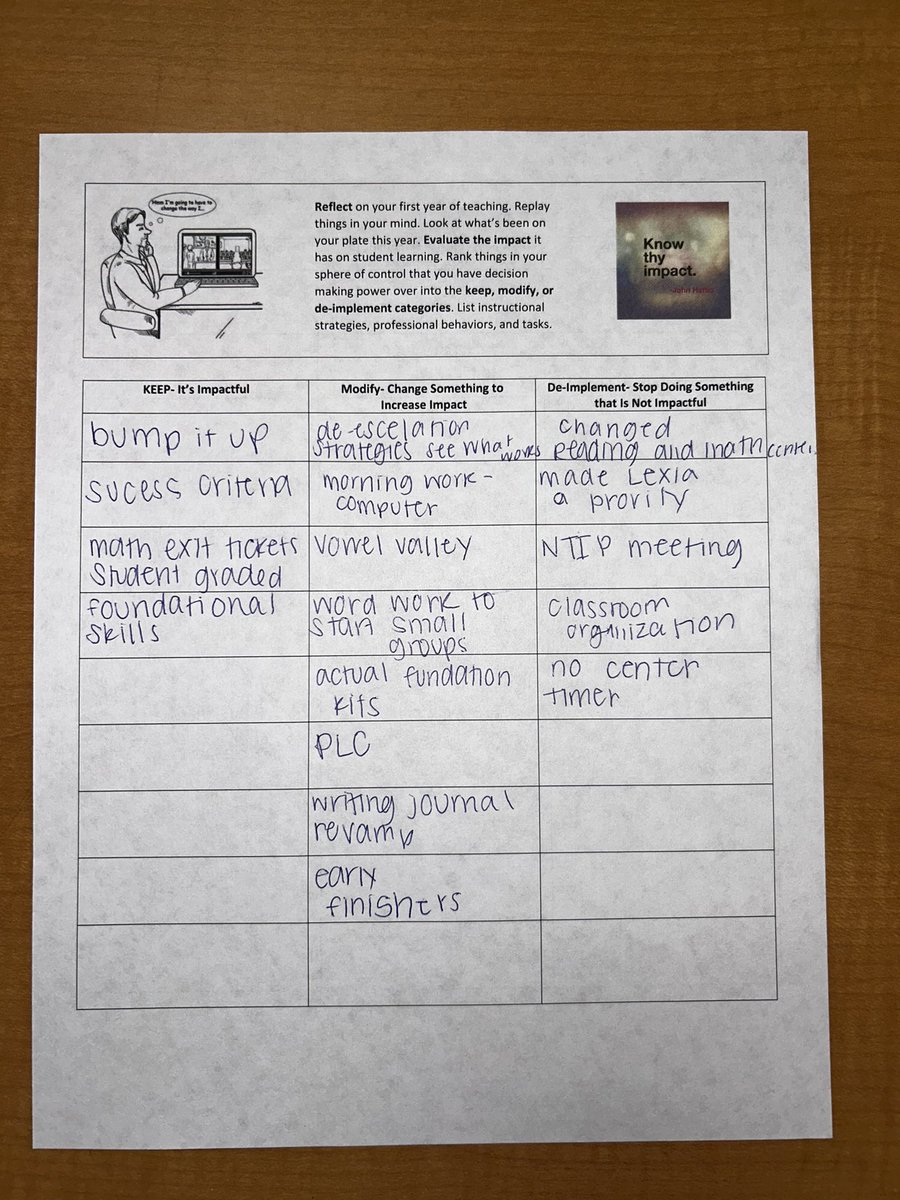 Now I'm going to have to
change the way I...
Reflect on your first year of teaching. Replay
things in your mind. Look at what's been on
your plate this year. Evaluate the impact it
has on student learning. Rank things in your
sphere of control that you have decision
making power over into the keep, modify, or
de-implement categories. List instructional
strategies, professional behaviors, and tasks.
Know
thy
impact.
-John Hattie
KEEP- It's Impactful
Modify- Change Something to
Increase Impact
De-Implement- Stop Doing Something
that Is Not Impactful
bump it up
de-escelation
strategies see what works
changed
reading and math
sucess criteria
morning work -
computer
made Lexia
a prority
math exit tickets
student graded
vowel valley
NTIP meeting
foundational
skills
word work to
start small
groups
classroom
orgniization
actual fundation
kits
no center
timer
PLC
writing journal
revamp
early
finishers